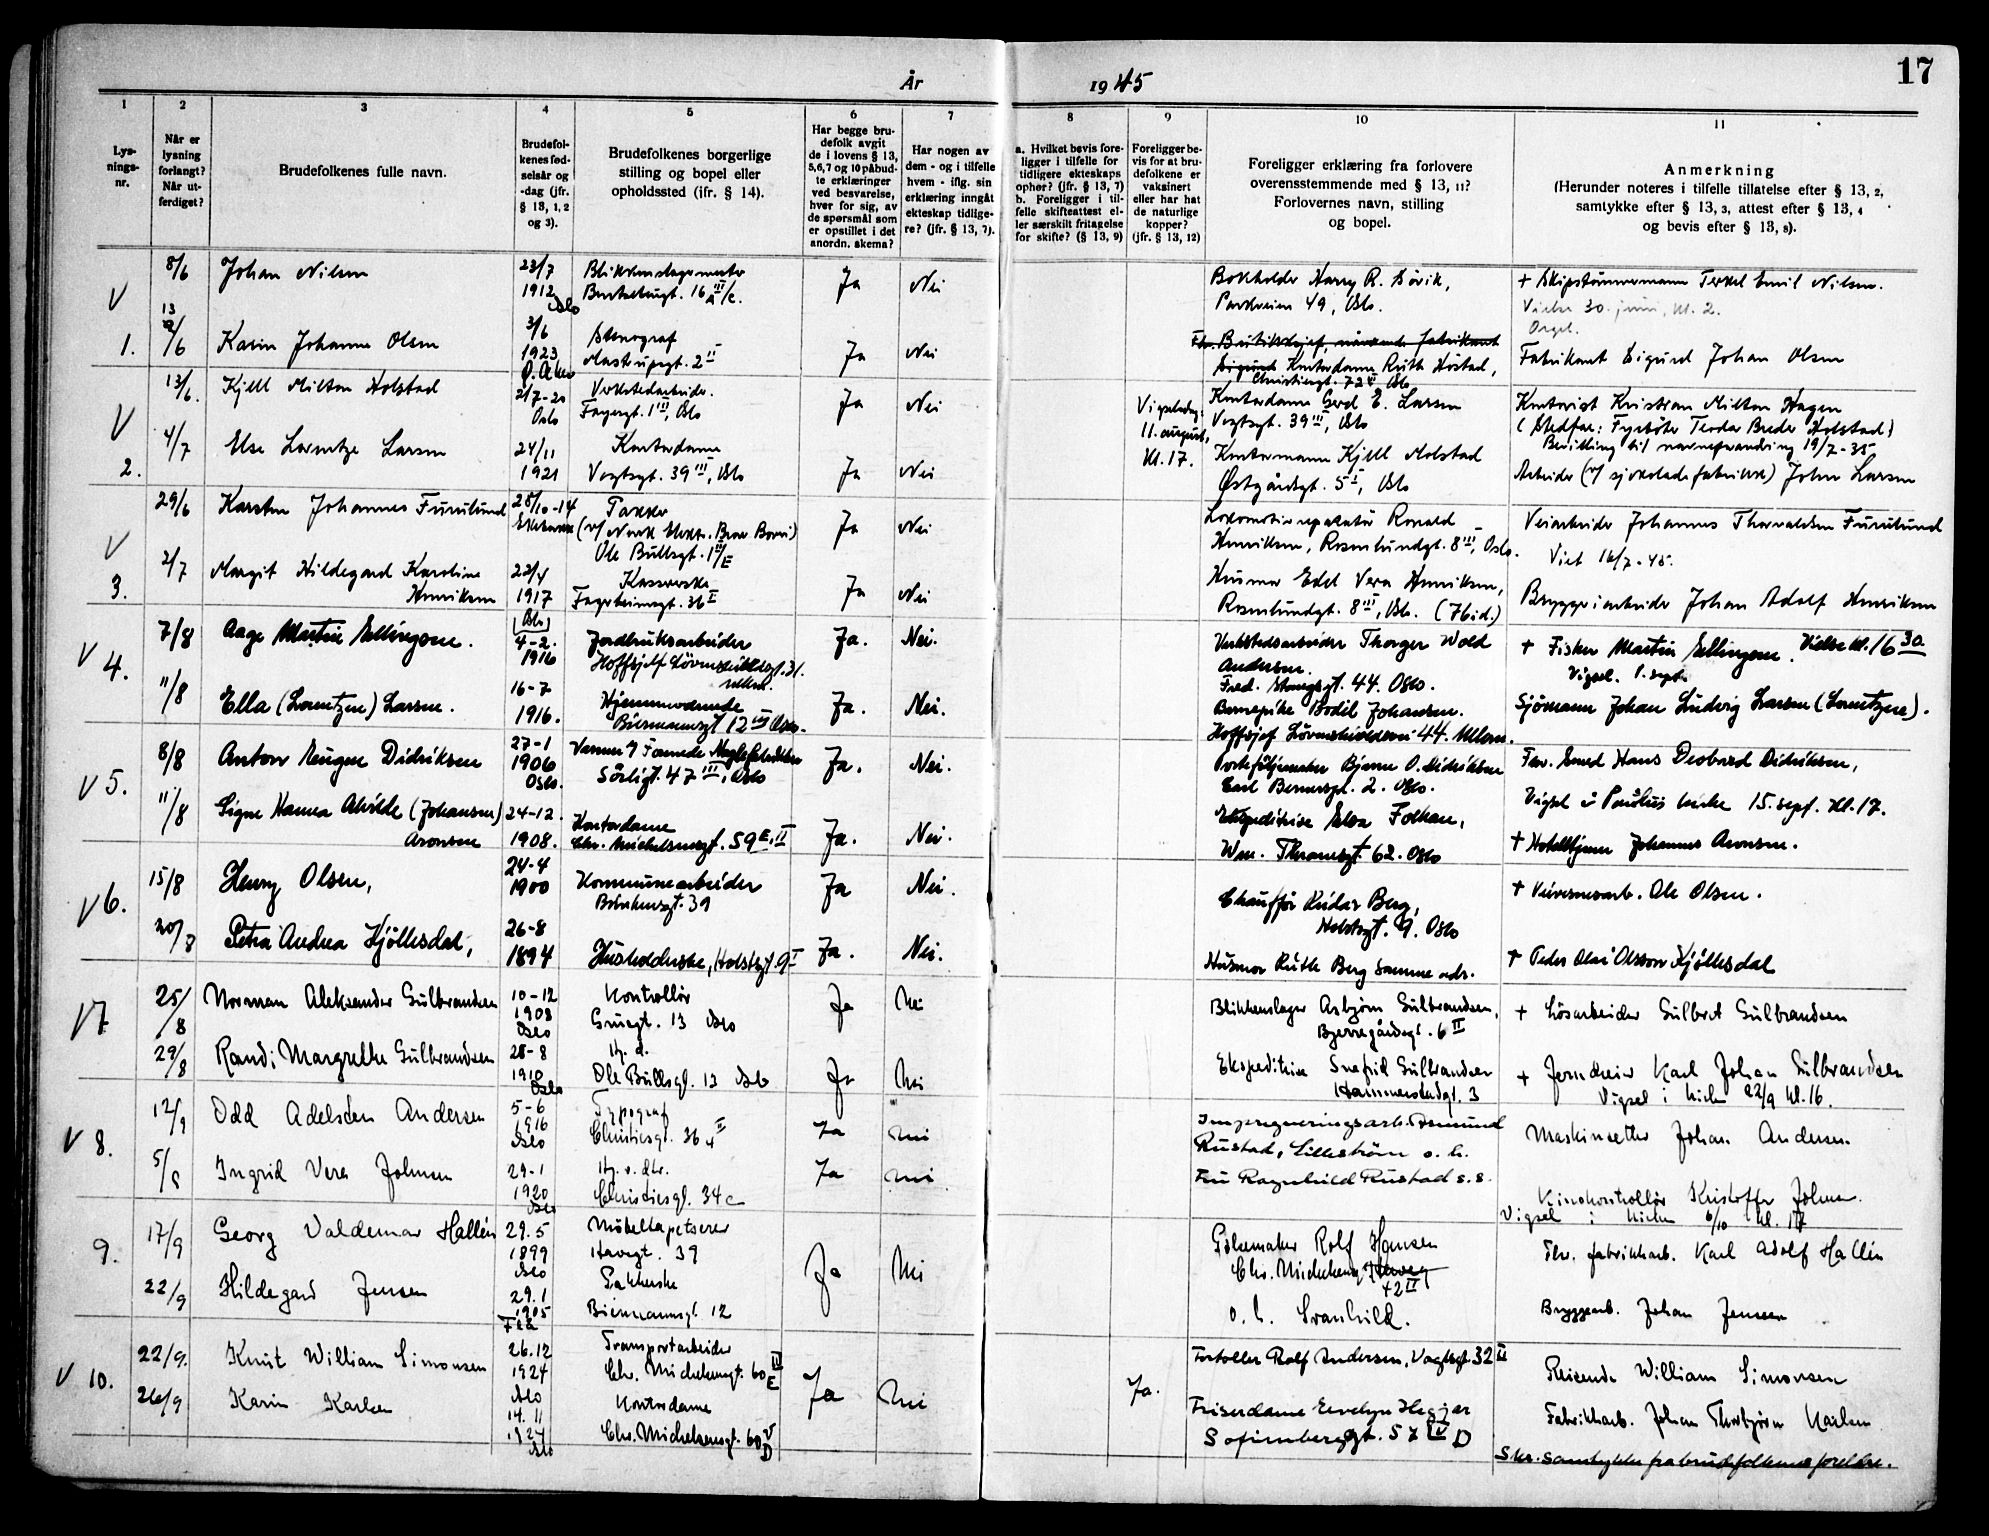 17
År 1945
1
2
3
4
5
6
7
8
9
10
11
Lys-
nings-
nr.
Når er
lysning
forlangt?
Når ut-
ferdiget?
Brudefolkenes fulle navn.
Brudefol-
kenes fød-
selsår og
-dag (jfr.
§ 13, 1, 2
og 3).
Brudefolkenes borgerlige
stilling og bopel eller
opholdssted (jfr. § 14).
Har begge bru-
defolk avgit
de i lovens § 13,
5,6,7 og 10 påbud-
te erklæringer
ved besvarelse,
hver for sig, av
de spørsmål som
er opstillet i det
anordn. skema?
Har nogen av
dem - og i tilfelle
hvem - iflg. sin
erklæring inngått
ekteskap tidlige-
re? (jfr. § 13, 7).
a. Hvilket bevis fore-
ligger i tilfelle for
tidligere ekteskaps
ophør? (jfr. § 13, 7)
b. Foreligger i til-
felle skifteattest el-
ler særskilt fritagelse
for skifte? (§ 13, 9)
Foreligger be-
vis for at bru-
defolkene er
vaksinert
eller har hat
de naturlige
kopper?
(jfr. § 13, 12)
Foreligger erklæring fra forlovere
overensstemmende med § 13, 11?
Forlovernes navn, stilling
og bopel.
Anmerkning
(Herunder noteres i tilfelle tillatelse efter § 13, 2,
samtykke efter § 13, 3, attest efter § 13, 4
og bevis efter § 13, 8).
V 1.
8/6 Johan Nilsen 23/7 1912 Oslo Ja Nei
Bokholder Harry R.
Parkveien 49, Oslo.
+ Skipstømmermann Terkel Emil Nilsen.
Vielse 30. juni, kl. 2.
Orgel.
Karin Johanne Olsen 3/6 1923 Stenograf Ja Nei
Kontordame Ruth
Christiesgt. Oslo
Fabrikant Sigurd Johan Olsen
V 2.
13/6. Kjell Milton Holstad 2/7-20 Oslo Verkstedarbeider.
Fagergt. 1 III, Oslo Ja Nei
Vigselsdag:
11. august,
kl. 17.
Kontordame Gerd E. Larsen
Vogtsgt. 39 III, Oslo
Kontorist Kristian Milton Hagen
(Stedfar: Fyrbøter Teodor Holstad)
Bevilling til navneforandring 19/7-35
4/7 Else Lorentze Larsen 24/11 1921 Kontordame
Vogtsgt. 39 III, Oslo Ja Nei
Kontormann Kjell Holstad
Østgårdsgt. 5 I, Oslo
Arbeider (v/ sjokoladefabrikk) John Larsen
V 3.
29/6 Karsten Johannes Furulund 28/10-14
Ole Bullsgt. Ja Nei
Lokomotivreparatør Ronald
Henriksen, Rosenlundgt. 8 III, Oslo.
Veiarbeider Johannes Thorvaldsen Furulund
Viet 14/7-45.
2/7 Margit Hildegard Karoline
Henriksen 22/4 1917 Kasserske
Fagerheimsgt. 36 I Ja Nei
Husmor Edel Vera Henriksen,
Rosenlundgt. 8 III, Oslo. (7bid.)
Bryggeriarbeider Johan Adolf Henriksen
V 4.
7/8 Aage Martin Ellingsen. (Oslo) 4-2. 1916 Jordbruksarbeider
Ja. Nei.
Verkstedsarbeider Thorger Wold
Andersen.
Fred. Stangsgt. 44. Oslo.
+ Fisker Martin Ellingsen. Vielse kl. 16 30.
Vigsel. 1. sept.
11/8 Ella (Lorentzen) Larsen. 16-7 1916. Hjemmeværende
Biermannsgt 12 III Oslo. Ja. Nei.
Barnepike Bodil Johansen.
Sjømann Johan Ludvig Larsen (Lorentzen).
V 5.
8/8 Anton Eugen Didriksen 27-1 1906 Oslo.
Sörligt. 47 III, Oslo Ja. Nei.
Porteføljemaker Bjarne O. Didriksen
Carl Bernersgt. 2. Oslo.
Didriksen,
Vigsel i Paulus kirke 15. sept. kl. 17.
11/8 Signe Hanna Alvilde (Johansen)
Aronsen 24-12. 1908. Kontordame
Chr. Michelsensgt. 59 E. II Ja. Nei.
Ekspeditrise Elsa Folkan,
Wm. Thranesgt. 62. Oslo
+ Hotelltjener Johannes Aronsen.
V 6.
15/8 Henry Olsen, 24-4 1900 Kommunearbeider
Birkensgt. 39 Ja Nei.
Chauffør Reidar Berg,
Holstsgt. 9. Oslo
+ Veivesensarb. Ole Olsen.
20/8 Petra Andrea Kjöllesdal, 26-8 1894 Husholderske, Holstsgt. 9 I Ja. Nei.
Husmor Ruth Berg samme adr.
+ Peder Olai Olsson Kjöllesdal
V 7
25/8 Norman Aleksander Gulbrandsen 10-12 1908 Oslo Kontrollör
Gruegt. 13 Oslo Ja Nei
Blikkenslager Asbjørn Gulbrandsen,
Bjerregårdsgt. 6 II
+ Løsarbeider Gulbrand Gulbrandsen
29/8 Randi Margrethe Gulbrandsen 28-8 1910 Oslo Hj. d.
Ole Bullsgt. 13 Oslo Ja Nei
Ekspeditrise Snefrid Gulbrandsen
Hammerstadgt. 3
+ Jerndreier Karl Johan Gulbrandsen
Vigsel i kirken 22/9 kl. 16.
V 8.
12/9 Odd Adelsten Andersen 5-6 1916 Oslo Typograf
Christiesgt. 36 II Ja Nei
Impregneringsarb. Osmund
Rustad, Lilleström o. h.
Maskinsetter Johan Andersen
Ingrid Vera Johnsen 29-1 1920 Oslo
Christiesgt. 34 c Ja Nei
Fru Ragnhild Rustad s. s.
Kinokontrollør Kristoffer Johnsen.
Vigsel i kirken 6/10 kl. 17
9.
17/9 Georg Valdemar Hallén 29.5 1899 Oslo Møbeltapetserer
Havegt. 39 Ja Nei
Gulvmaker Rolf Hansen
42 II
Fhv. fabrikkarb. Karl Adolf Hallén
22/9 Hildegard Jensen 29.1 1905 Pakkerske
Biermannsgt. 12
o. h. Svanhild.
Bryggerarb. Johan Jensen
V 10.
22/9. Knut William Simonsen 26.12 1924 Oslo Transportarbeider
Chr. Michelsensgt. 60 E Ja Nei Ja.
Fortoller Rolf Andersen, Vogtsgt. 32 II
Reisende William Simonsen
26/9 Karin Karlsen 14. 11 Oslo Kontordame
Chr. Michelsensgt. 60 V D
Friserdame Evelyn
Sofienberggt. 57 IV D
Fabrikkarb. Johan Thorbjørn Karlsen
Skr. samtykke fra brudefolkenes foreldre.